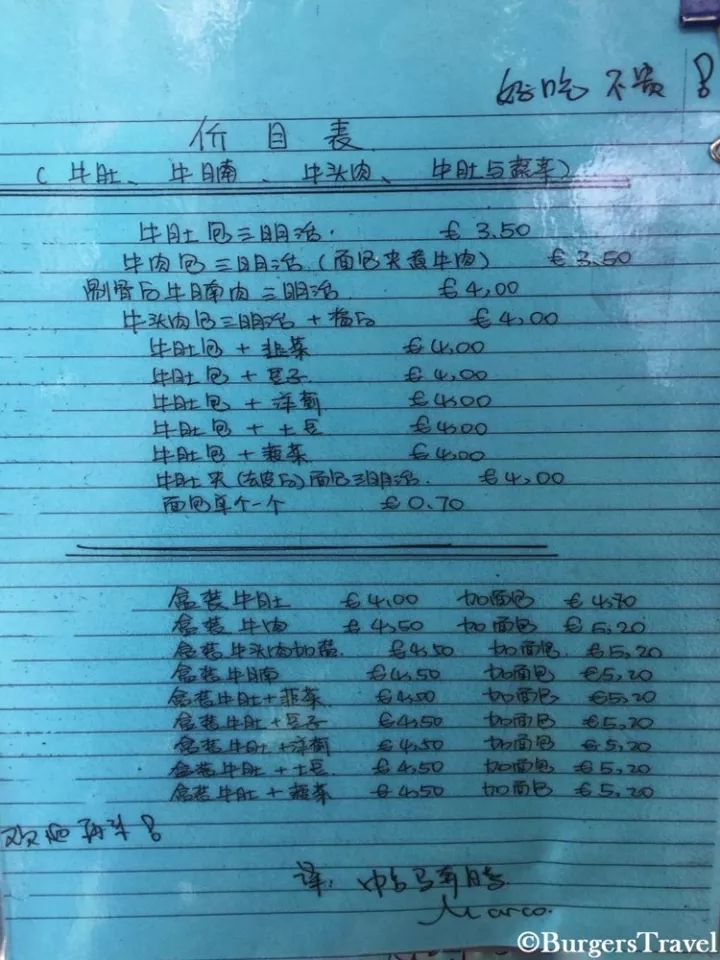 好吃不贵!
价目表
(牛肚、牛腩、牛头肉、牛肚与蔬菜)
牛肚包三明治. € 3.50
牛肉包三明治(面包夹煮牛肉) € 3.50
剔骨后牛腩肉三明治 € 4,00
牛头肉包三明治 + € 4,00
牛肚包 + 韭菜 € 4,00
牛肚包 + 豆子 € 4,00
牛肚包 + 洋蓟 € 4,00
牛肚包 + 土豆 € 4,00
牛肚包 + 蔬菜 € 4,00
牛肚夹(去皮后)面包三明治. € 4,00
面包单个一个 € 0.70
盒装牛肚 € 4,00 加面包 € 4,70
盒装牛肉 € 4,50 加面包 € 5,20
盒装牛头肉加 € 4,50 加面包. € 5,20
盒装牛腩 € 4,50 加面包 € 5,20
盒装牛肚 + 韭菜 € 4,50 加面包 € 5,20
盒装牛肚 + 豆子 € 4,50 加面包 € 5,20
盒装牛肚 + 洋蓟 € 4,50 加面包 € 5,20
盒装牛肚 + 土豆. € 4,50 加面包 € 5,20
盒装牛肚 + 蔬菜 € 4,50 加面包 € 5,20
欢迎再来!
译:
Marco.
©BurgersTravel